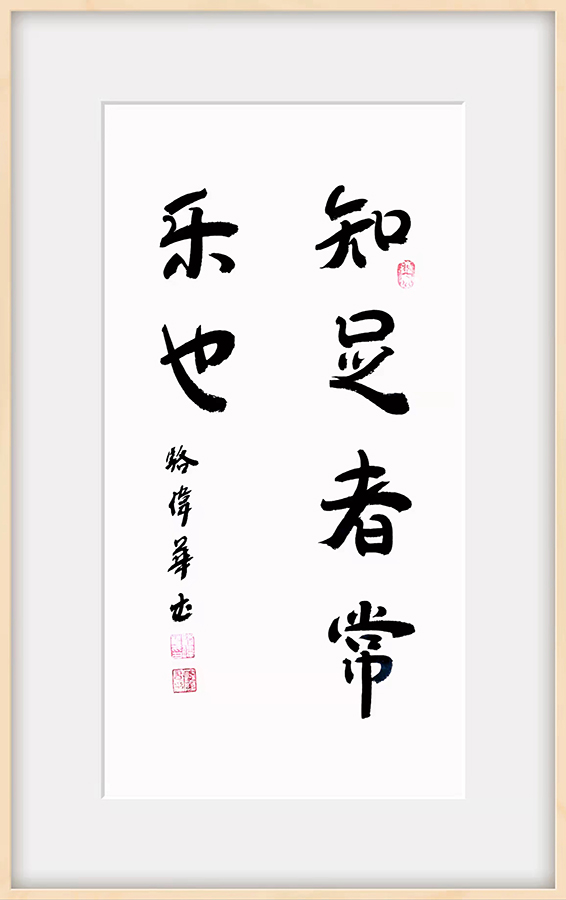 知足者常
乐也
駱偉華书